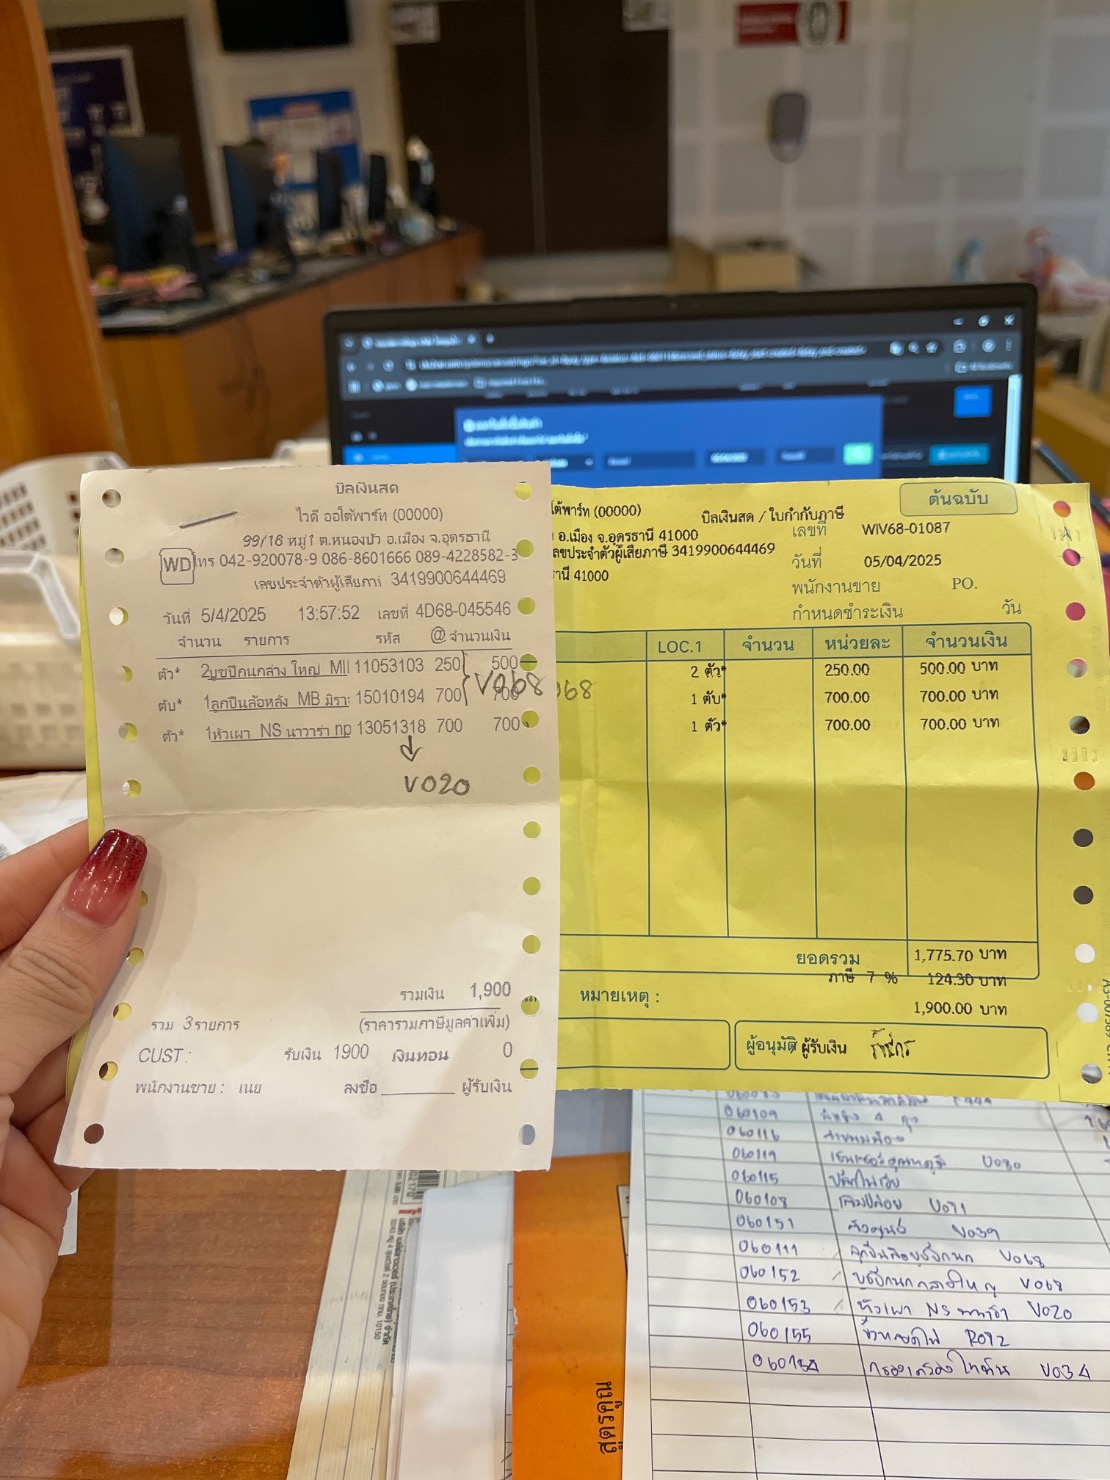 บิลเงินสด
ไวดี ออโต้พาร์ท (00000)
99/18 หมู่ 1 ต.หนองบัว อ.เมือง จ.อุดรธานี
WD
โทร 042-920078-9 086-8601666 089-4228582-3
เลขประจำตัวผู้เสียภาษี 3419900644469
วันที่ 5/4/2025 13:57:52 เลขที่ 4D68-045546
จำนวน รายการ รหัส @ จำนวนเงิน
ตัว* 2 บูชปีกนกล่าง ใหญ่ MII 11053103 250 500
ตับ* 1 ลูกปืนล้อหลัง MB มิรา 15010194 700 700
V068
ตัว* 1 หัวเผา NS นาวาร่า np 13051318 700 700
V020
รวมเงิน 1,900
รวม 3 รายการ (ราคารวมภาษีมูลค่าเพิ่ม)
CUST: รับเงิน 1900 เงินทอน 0
พนักงานขาย: เนย ลงชื่อ ผู้รับเงิน
ต้นฉบับ
โต้พาร์ท (00000) บิลเงินสด / ใบกำกับภาษี
เลขที่ WIV68-01087
อ.เมือง จ.อุดรธานี 41000
ลขประจำตัวผู้เสียภาษี 3419900644469
วันที่ 05/04/2025
านี 41000
พนักงานขาย PO.
กำหนดชำระเงิน วัน
LOC.1 จำนวน หน่วยละ จำนวนเงิน
2 ตัว* 250.00 500.00 บาท
068
1 ตับ* 700.00 700.00 บาท
1 ตัว* 700.00 700.00 บาท
ยอดรวม 1,775.70 บาท
ภาษี 7 % 124.30 บาท
หมายเหตุ : 1,900.00 บาท
ผู้อนุมัติ ผู้รับเงิน
060109
060116
060119 V080
060115
060108 V071
060151 V039
060111 V068
060152 V068
060153 หัวเผา NS นาวาร่า V020
060155 R092
060154 V034
สูตรคูณ